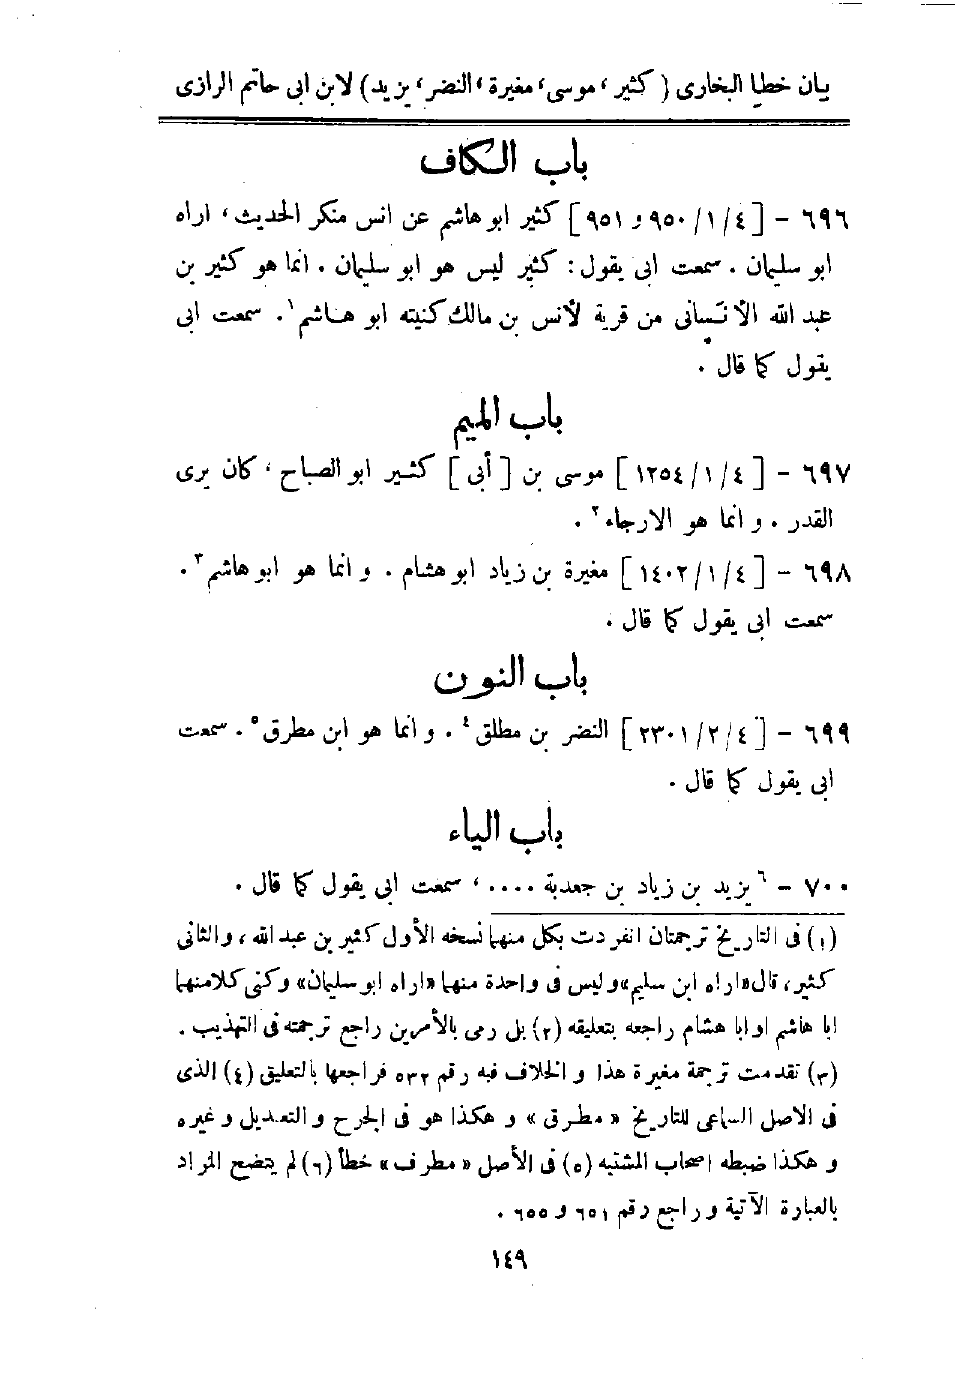 بيان خطا البخارى ( كثير ، موسى ، مغيرة ، النضر ، يزيد ) لابن ابى حاتم الرازى
باب الكاف
٦٩٦ - [ ٤ / ١ / ٩٥٠ و ٩٥١ ] كثير ابو هاشم عن انس منكر الحديث ، اراه
ابو سليمان . سمعت ابى يقول : كثير ليس هو ابو سليمان . انما هو كثير بن
عبد الله الأنسانى من قرية لأنس بن مالك كنيته ابو هاشم ١ . سمعت ابى
يقول كما قال .
باب الميم
٦٩٧ - [ ٤ / ١ / ١٢٥٤ ] موسى بن [ أبى ] كثير ابو الصباح ، كان يرى
القدر . و انما هو الارجاء ٢ .
٦٩٨ - [ ٤ / ١ / ١٤٠٢ ] مغيرة بن زياد ابو هشام . و انما هو ابو هاشم ٣ .
سمعت ابى يقول كما قال .
باب النون
٦٩٩ - [ ٤ / ٢ / ٢٣٠١ ] النضر بن مطلق ٤ . و انما هو ابن مطرق ٥ . سمعت
ابى يقول كما قال .
باب الياء
٧٠٠ - ٦ يزيد بن زياد بن جعدبة .... ، سمعت ابى يقول كما قال .
(١) فى التاريخ ترجمتان انفردت بكل منهما نسخه الأول كثير بن عبد الله ، والثانى
كثير ، قال «اراه ابن سليم» وليس فى واحدة منهما «اراه ابو سليمان» وكنى كلا منهما
ابا هاشم او ابا هشام راجعه بتعليقه (٢) بل رمى بالأمرين راجع ترجمته فى التهذيب .
(٣) تقدمت ترجمة مغيرة هذا و الخلاف فبه رقم ٥٣٢ فراجعها بالتعليق (٤) الذى
فى الاصل الساعى للتاريخ « مطرق » و هكذا هو فى الجرح و التعديل و غيره
و هكذا ضبطه اصحاب المشتبه (٥) فى الأصل « مطرف » خطأ (٦) لم يتضح المراد
بالعبارة الآتية و راجع رقم ٦٥١ و ٦٥٥ .
١٤٩